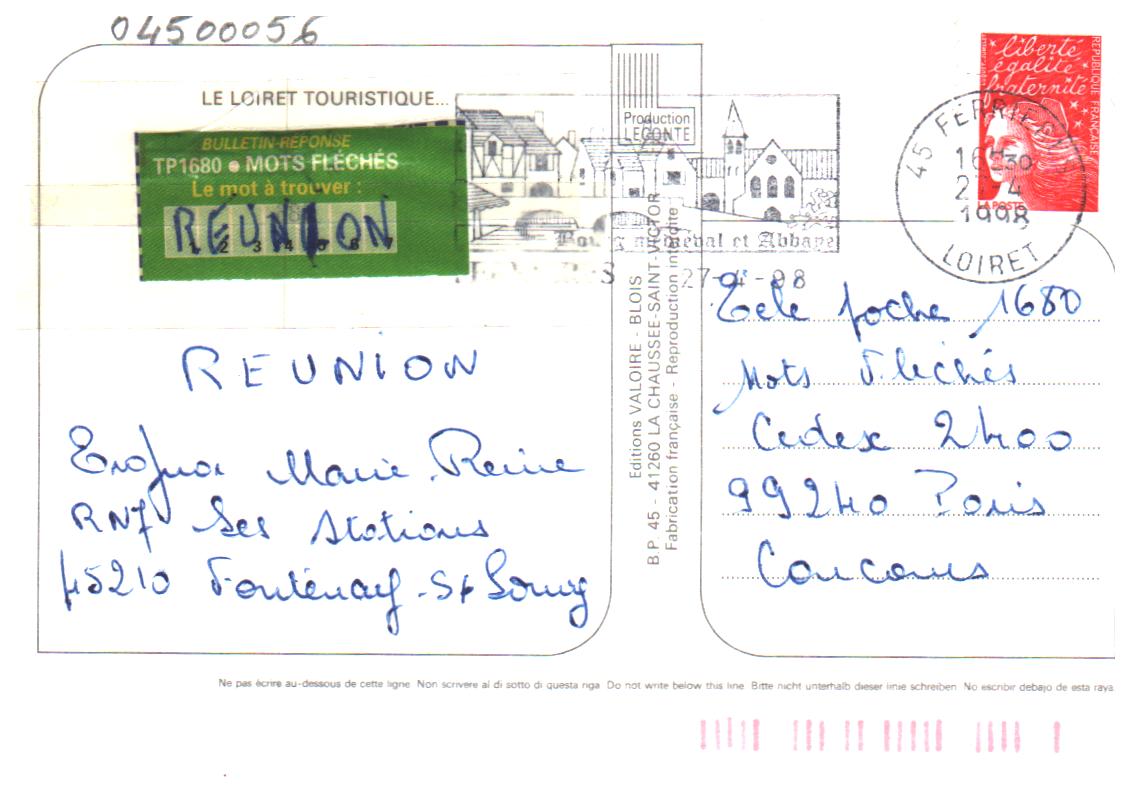 04500056
LE LOIRET TOURISTIQUE...
BULLETIN-RÉPONSE
TP1680 ● MOTS FLÉCHÉS
Le mot à trouver :
REUNION
1 2 3 4 5 6 7
Production
LECONTE
médiéval et Abbaye
27-4-98
liberté
égalité
fraternité
REPUBLIQUE FRANÇAISE
LA POSTE
45 FERRIERES
16H30
1998
LOIRET
REUNION
Marie Reine
RN7 Les Stations
45210 Fontenay-S/Loing
Editions VALOIRE - BLOIS
B.P. 45 - 41260 LA CHAUSSEE-SAINT-VICTOR
Fabrication française - Reproduction interdite
Tele poche 1680
Mots Flechés
Cedex 2400
99240 Paris
Concours
Ne pas écrire au-dessous de cette ligne Non scrivere al di sotto di questa riga Do not write below this line Bitte nicht unterhalb dieser linie schreiben No escribir debajo de esta raya